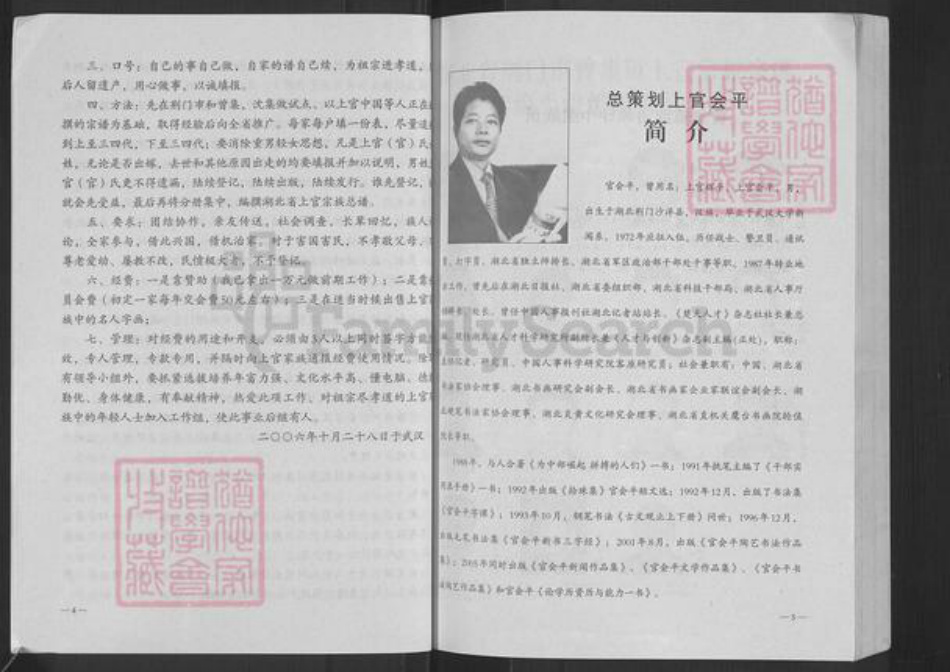 三、口号：自己的事自己做，自家的谱自己续，为祖宗进孝道，
后人留遗产，用心做事，以诚填报。
四、方法：先在荆门市和曾集、沈集做试点，以上官中国等人正在
撰的宗谱为基础，取得经验后向全省推广。每家每户填一份表，尽量
到上至三四代，下至三四代；要消除重男轻女思想，凡是上官（官）氏
姓，无论是否出嫁，去世和其他原因出走的均要填报并加以说明，男姓
官（官）氏更不得遗漏，陆续登记，陆续出版，陆续发行。谁先登记，
就会先受益，最后再将分册集中，编撰湖北省上官宗族总谱。
五、要求：团结协作，亲友传送，社会调查，长辈回忆，族人
论，全家参与，借此兴国，借机治家，对于害国害民，不孝敬父母，
尊老爱幼、屡教不改，民愤极大者，不予登记。
六、经费：一是靠赞助（我已拿出一万元做前期工作）；二是靠
员会费（初定一家每年交会费50元左右）；三是在适当时候出售上官
族中的名人字画；
七、管理：对经费的用途和开支，必须由3人以上同时签字方
效，专人管理，专款专用，并隔时向上官家族通报经费使用情况，除
有领导小组外，要抓紧选拔培养年富力强、文化水平高、懂电脑、德
勤优、身体健康，有奉献精神，热爱此项工作、对祖宗尽孝道的上官
族中的年轻人士加入工作组，使此事业后继有人。
二〇〇六年十月二十八日于武汉
—4—
总策划上官会平
简 介
官会平，曾用名：上官 、上官会平，男，
出生于湖北荆门沙洋县，汉族，毕业于武汉大学新
闻系，1972年应征入伍，历任战士、警卫员、通讯
员、打字员，湖北省独立师排长、湖北省军区政治部干部处干事等职，1987年转业地
方工作，曾先后在湖北日报社、湖北省委组织部、湖北省科技干部局、湖北省人事厅
处长。曾任中国人事报刊社湖北记者站站长、《楚天人才》杂志社社长兼总
编，现任湖北省人才科学研究所副所长兼《人才与创新》杂志副主编（正处），职称：
主任记者、研究员、中国人事科学研究院客座研究员；社会兼职有：中国、湖北省
书画家协会理事、湖北书画研究会副会长、湖北省书画家企业家联谊会副会长、湖
北硬笔书法家协会理事、湖北炎黄文化研究会理事、湖北省直机关鹰台书画院轮值
院长等职。
1988年，与人合著《为中部崛起 拼搏的人们》一书；1991年执笔主编了《干部实
用手册》一书；1992年出版《拾珠集》官会平短文选；1992年12月，出版了书法集
《官会平字课》；1993年10月，钢笔书法《古文观止上下册》问世；1996年12月，
出版毛笔书法集《官会平新书三字经》；2001年8月，出版《官会平陶艺书法作品
集》；2005年同时出版《官会平新闻作品集》、《官会平文学作品集》、《官会平书
法陶艺作品集》和官会平《论学历资历与能力一书》。
—5—
FamilySearch